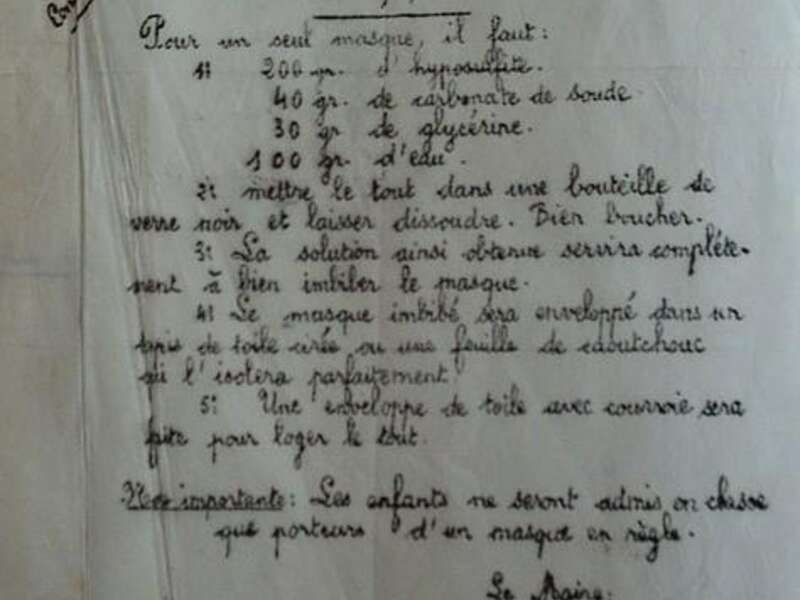 Pour un seul masque, il faut:
1: 200 gr. d'hyposulfite.
40 gr. de carbonate de soude
30 gr de glycérine.
100 gr. d'eau.
2: mettre le tout dans une bouteille de
verre noir et laisser dissoudre. Bien boucher.
3: La solution ainsi obtenue servira compléte-
ment à bien imbiber le masque.
4: Le masque imbibé sera enveloppé dans un
tapis de toile cirée ou une feuille de caoutchouc
qui l'isolera parfaitement.
5: Une enveloppe de toile avec courroie sera
faite pour loger le tout.
importante: Les enfants ne seront admis en classe
que porteurs d'un masque en règle.
Le Maire.